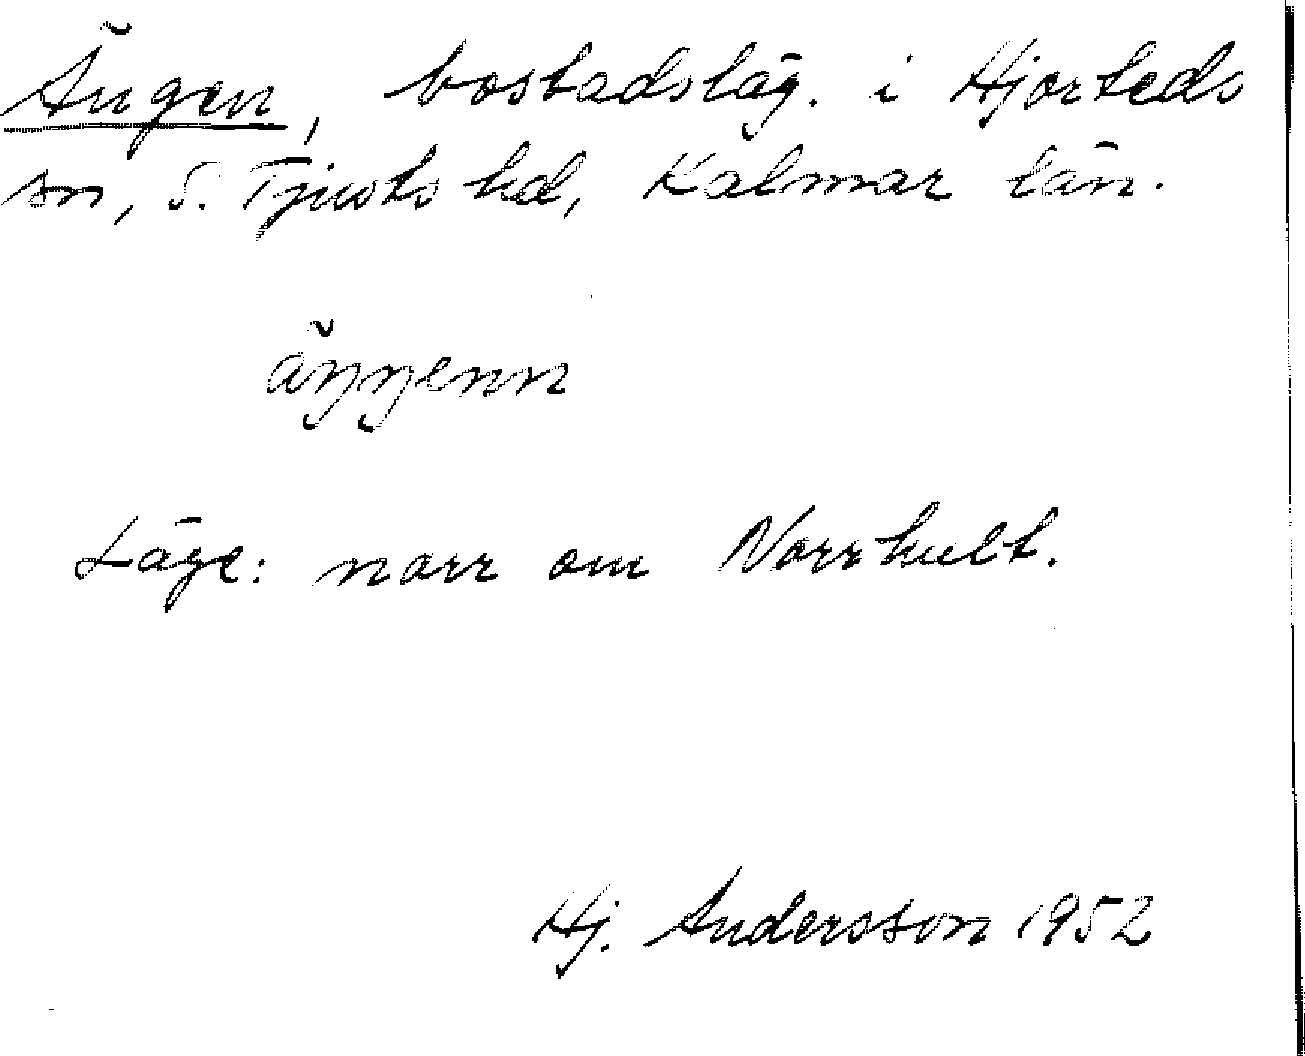 Ängen, bostadsläg. i Hjorteds
sn, S. Tjusts hd, Kalmar län.
äŋŋenn
Läge: norr om Norrhult.
Hj. Andersson 1952